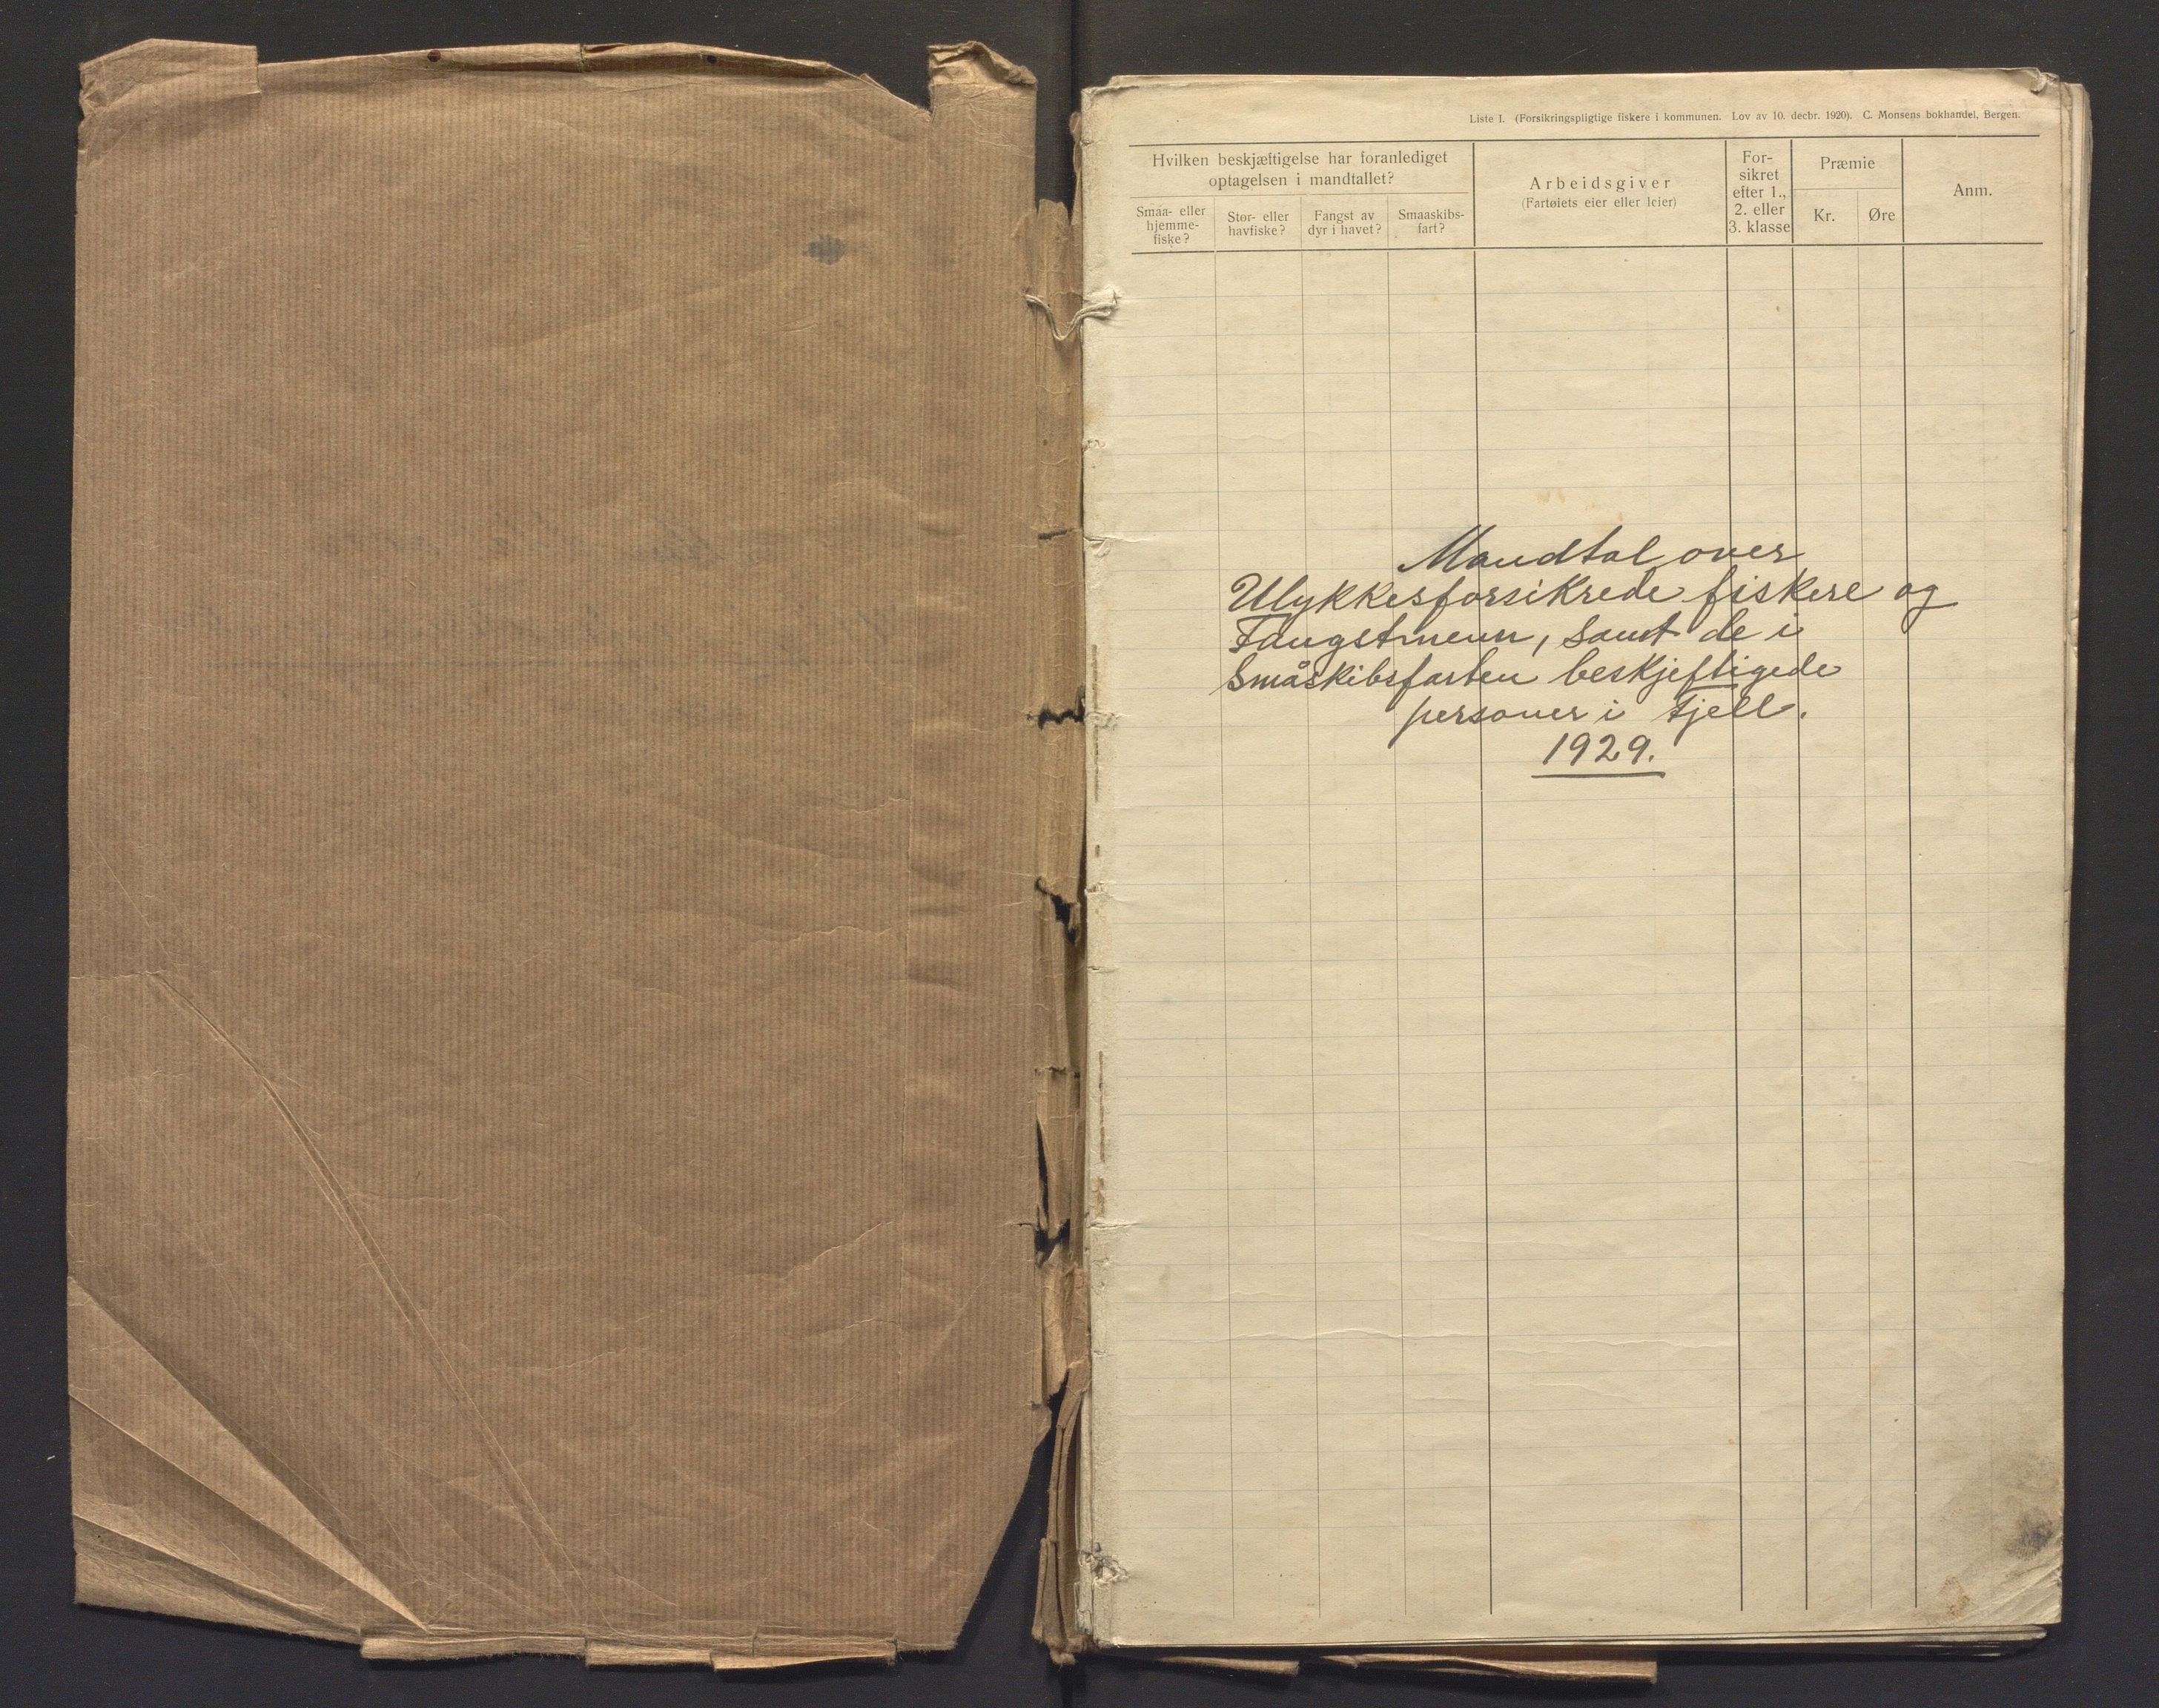 Liste I. (Forsikringspligtige fiskere i kommunen. Lov av 10. decbr. 1920). C. Monsens bokhandel, Bergen.
Hvilken beskjæftigelse har foranlediget
optagelsen i mandtallet?
Smaa- eller
hjemme-
fiske?
Stor- eller
havfiske?
Fangst av
dyr i havet?
Smaaskibs-
fart?
Arbeidsgiver
(Fartøiets eier eller leier)
For-
sikret
efter 1.,
2. eller
3. klasse
Præmie
Kr.
Øre
Anm.
Mandtal over
Ulykkesforsikrede fiskere og
Fangstmenn, samt de i
Småskibsfarten beskjeftigede
personer i Fjell.
1929.